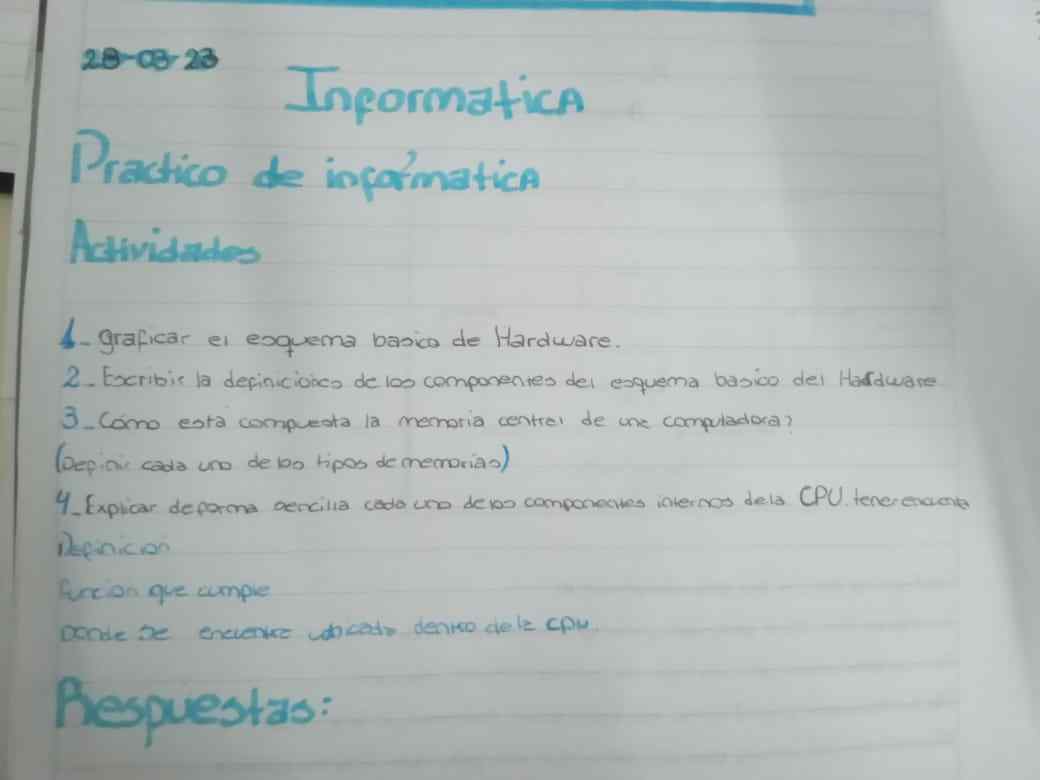 28-03-23
InformaticA
Practico de informaticA
Actividades
1_ graficar el esquema basico de Hardware.
2_ Escribir la definiciones de los componentes del esquema basico del Hardware
3_ Cómo esta compuesta la memoria central de una computadora?
(Definir cada uno de los tipos de memorias)
4_ Explicar de forma sencilla cada uno de los componentes internos de la CPU. tener encuenta
Definicion
Funcion que cumple
Donde se encuentra ubicado dentro de la CPU.
Respuestas: